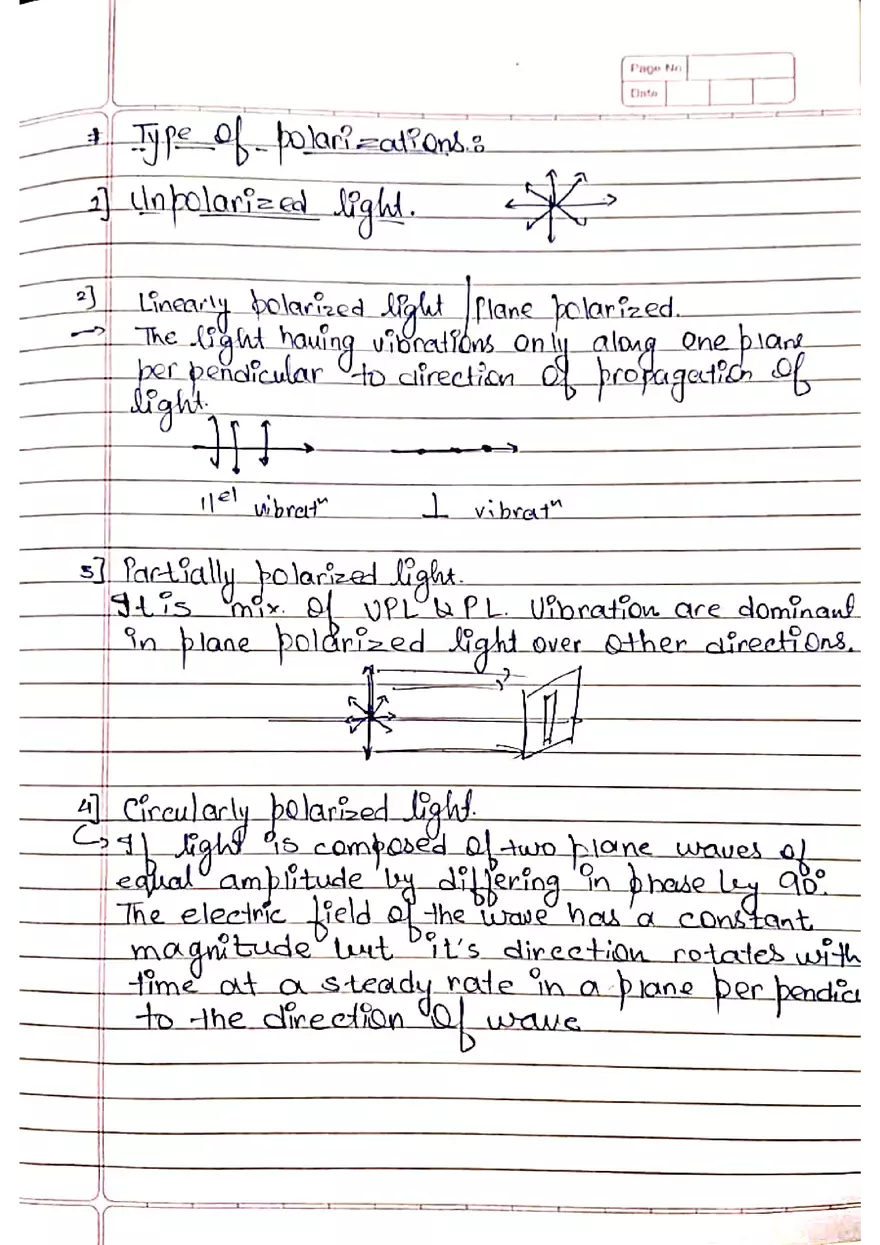 Page No
Date
* Type of polarizations:
1] Unpolarized light.
2] Linearly polarized light / Plane polarized.
→ The light having vibrations only along one plane
perpendicular to direction of propagation of
light.
||el vibratn ⊥ vibratn
3] Partially polarized light.
It is mix. of UPL & PL. Vibration are dominant
in plane polarized light over other directions.
4] Circularly polarized light.
↪ If light is composed of two plane waves of
equal amplitude by differing in phase by 90°.
The electric field of the wave has a constant
magnitude but it's direction rotates with
time at a steady rate in a plane perpendicu
to the direction of wave